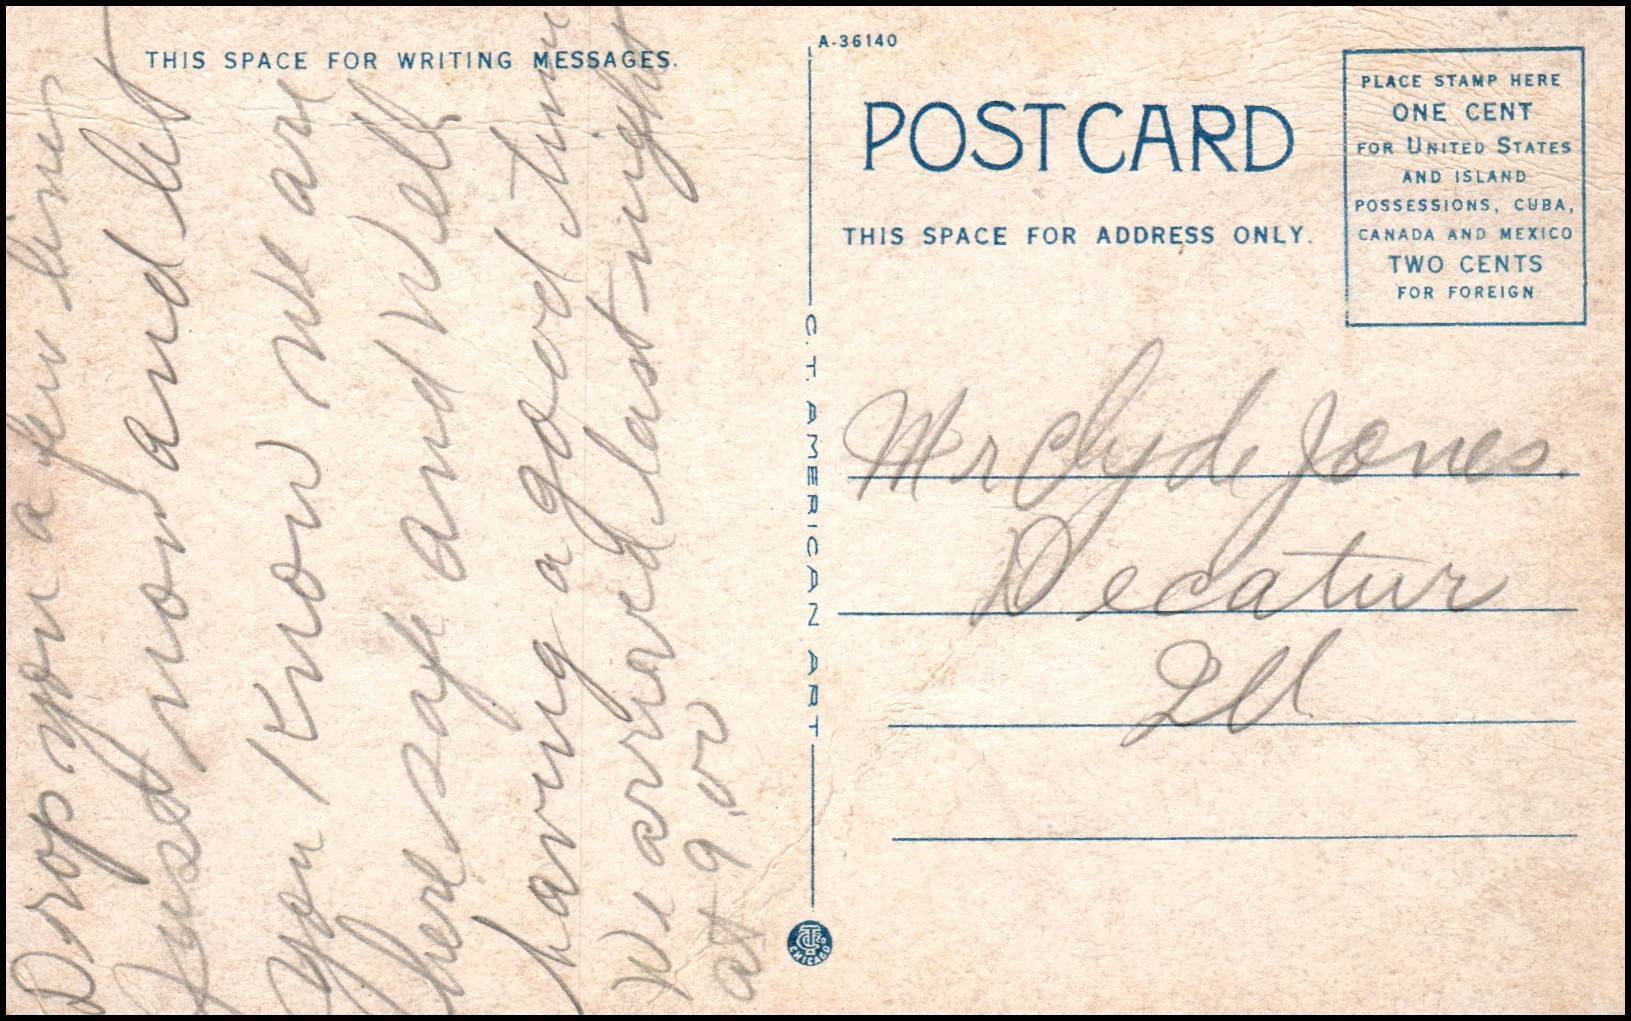 THIS SPACE FOR WRITING MESSAGES.
Drop you a few lines
Just now and let
you Know we are
here safe and Well
having a good time
We arrived last night
at 9,00
A-36140
POST CARD
THIS SPACE FOR ADDRESS ONLY.
PLACE STAMP HERE
ONE CENT
FOR UNITED STATES
AND ISLAND
POSSESSIONS, CUBA,
CANADA AND MEXICO
TWO CENTS
FOR FOREIGN
C. T. AMERICAN ART
CHICAGO
Mr Clyde Jones.
Decatur
Ill